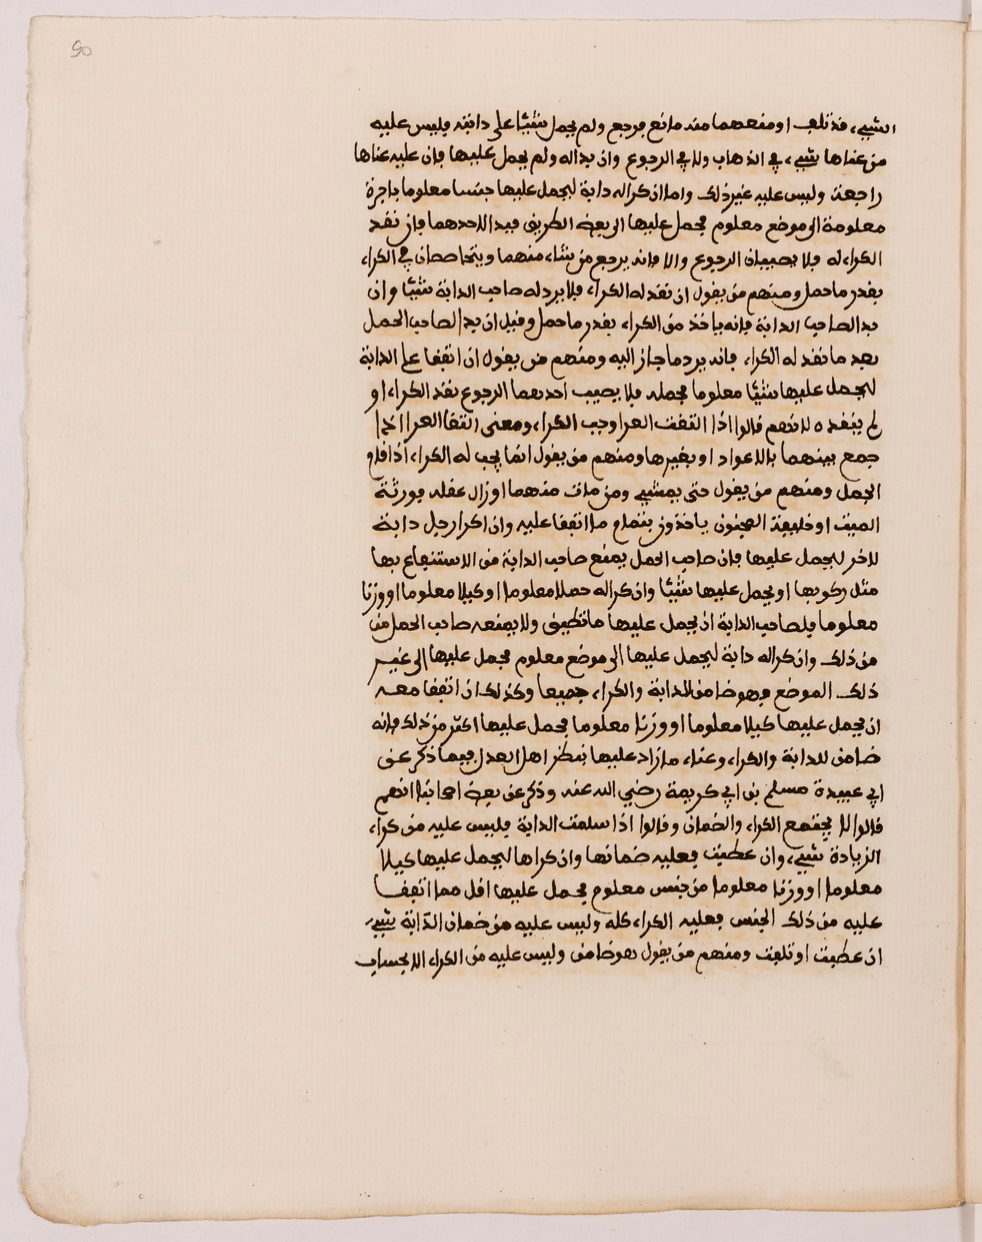 50
الشيء قد تلف او منعهما منه مانع فرجع ولم يحمل شيئا على دابته فليس عليه
من عناها شيء في الذهاب ولا في الرجوع وان بدا له ولم يحمل عليها فان عليه عناها
راجعة وليس عليه غير ذلك واما ان كرا له دابة ليحمل عليها جنسا معلوما باجرة
معلومة الى موضع معلوم فحمل عليها الى بعض الطريق فبدا لاحدهما فان نقد
الكراء له فلا يصيبان الرجوع والا فانه يرجع من شاء منهما ويتحاصصان في الكراء
بقدر ما حمل ومنهم من يقول ان نقد له الكراء فلا يرد له صاحب الدابة شيئا وان
بدا لصاحب الدابة فانه ياخذ من الكراء بقدر ما حمل وقيل ان بدا لصاحب الحمل
بعد ما نقد له الكراء فانه يرد ما جاز اليه ومنهم من يقول ان اتفقا على الدابة
ليحمل عليها شيئا معلوما فحمله فلا يصيب احدهما الرجوع نقد الكراء او
لم ينقده لانهم قالوا اذا التقت العرا وجب الكراء ومعنى التقا العرا اذا
جمع بينهما بالاعواد او بغيرها ومنهم من يقول انما يجب له الكراء اذا قام
الجمل ومنهم من يقول حتى يمشي ومن مات منهما او زال عقله فورثة
الميت او خليفة المجنون ياخذون بتمام ما اتفقا عليه وان اكرا رجل دابة
لاخر ليحمل عليها فان صاحب الحمل يمنع صاحب الدابة من الاستنفاع بها
مثل ركوبها او يحمل عليها شيئا وان كرا له حملا معلوما او كيلا معلوما او وزنا
معلوما فلصاحب الدابة ان يحمل عليها ما تطيق ولا يمنعه صاحب الحمل من
من ذلك وان كرا له دابة ليحمل عليها الى موضع معلوم فحمل عليها الى غير
ذلك الموضع فهو ضامن للدابة والكراء جميعا وكذلك ان اتفقا معه
ان يحمل عليها كيلا معلوما او وزنا معلوما فحمل عليها اكثر من ذلك فانه
ضامن للدابة والكراء وعناء ما زاد عليها بنظر اهل العدل فيما ذكر عن
ابي عبيدة مسلم بن ابي كريمة رضي الله عنه وذكر عن بعض اصحابنا انهم
قالوا لا يجتمع الكراء والضمان وقالوا اذا سلمت الدابة فليس عليه من كراء
الزيادة شيء وان عطبت فعليه ضمانها وان كراها ليحمل عليها كيلا
معلوما او وزنا معلوما من جنس معلوم فحمل عليها اقل مما اتفقا
عليه من ذلك الجنس فعليه الكراء كله وليس عليه من ضمان الدابة شيء
ان عطبت او تلفت ومنهم من يقول هو ضامن وليس عليه من الكراء الا بحساب